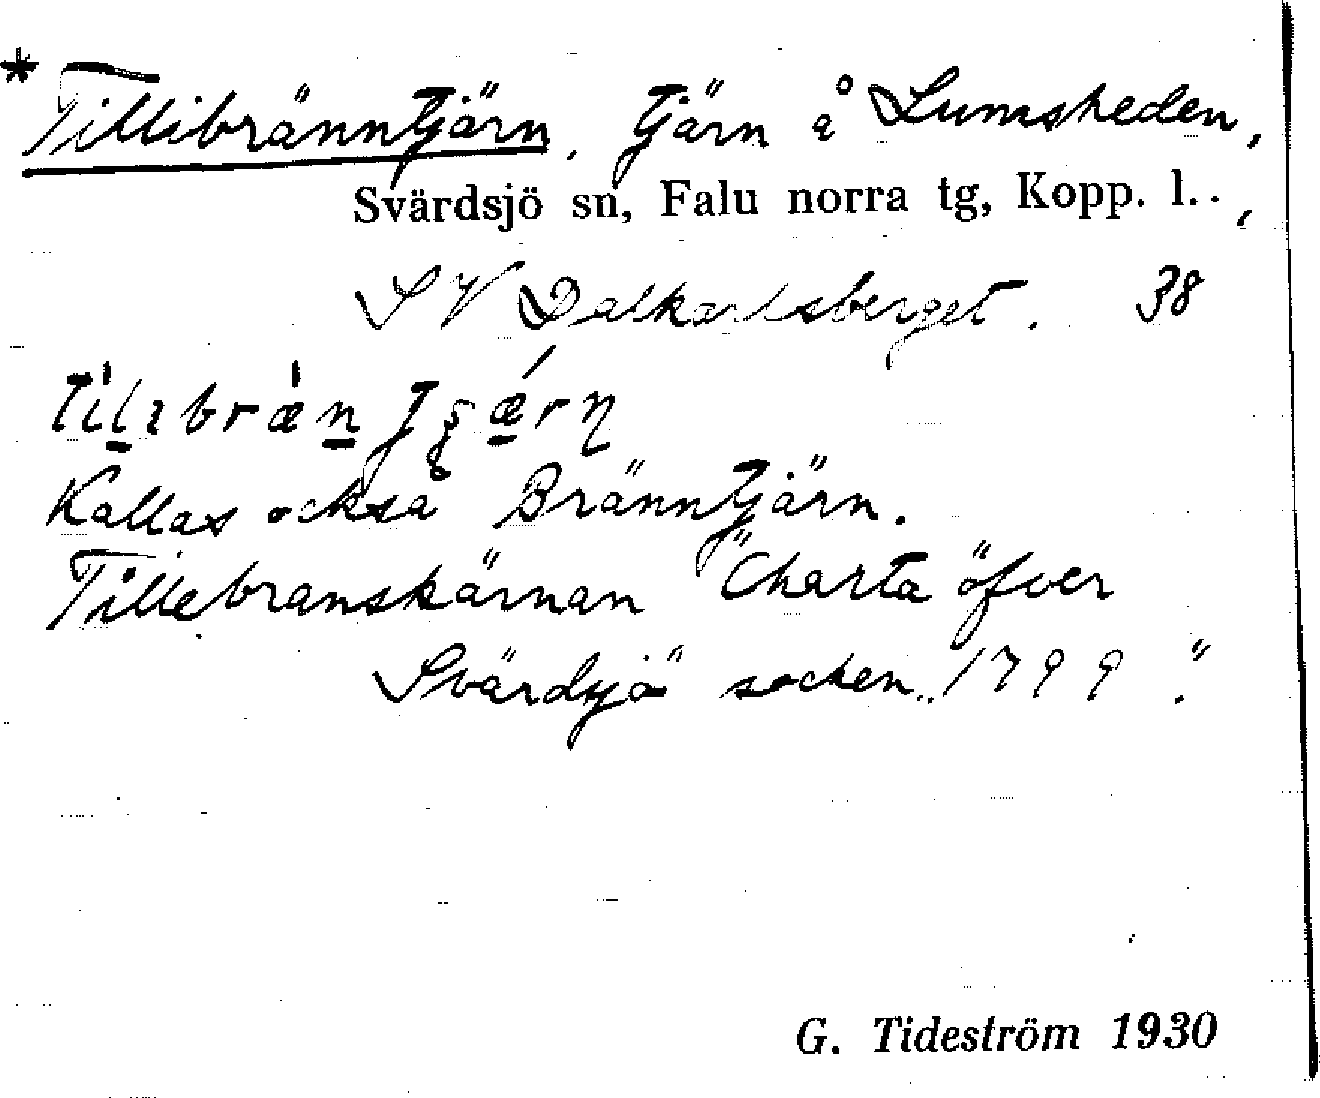 * Tillibränntjärn. Tjärn å Lumsheden,
Svärdsjö sn, Falu norra tg, Kopp. l..,
SV Dalkarlsberget. 38
Kallas också Bränntjärn.
Tillebranskärnan "Charta öfver
Svärdsjö socken 1799."
G. Tideström 1930